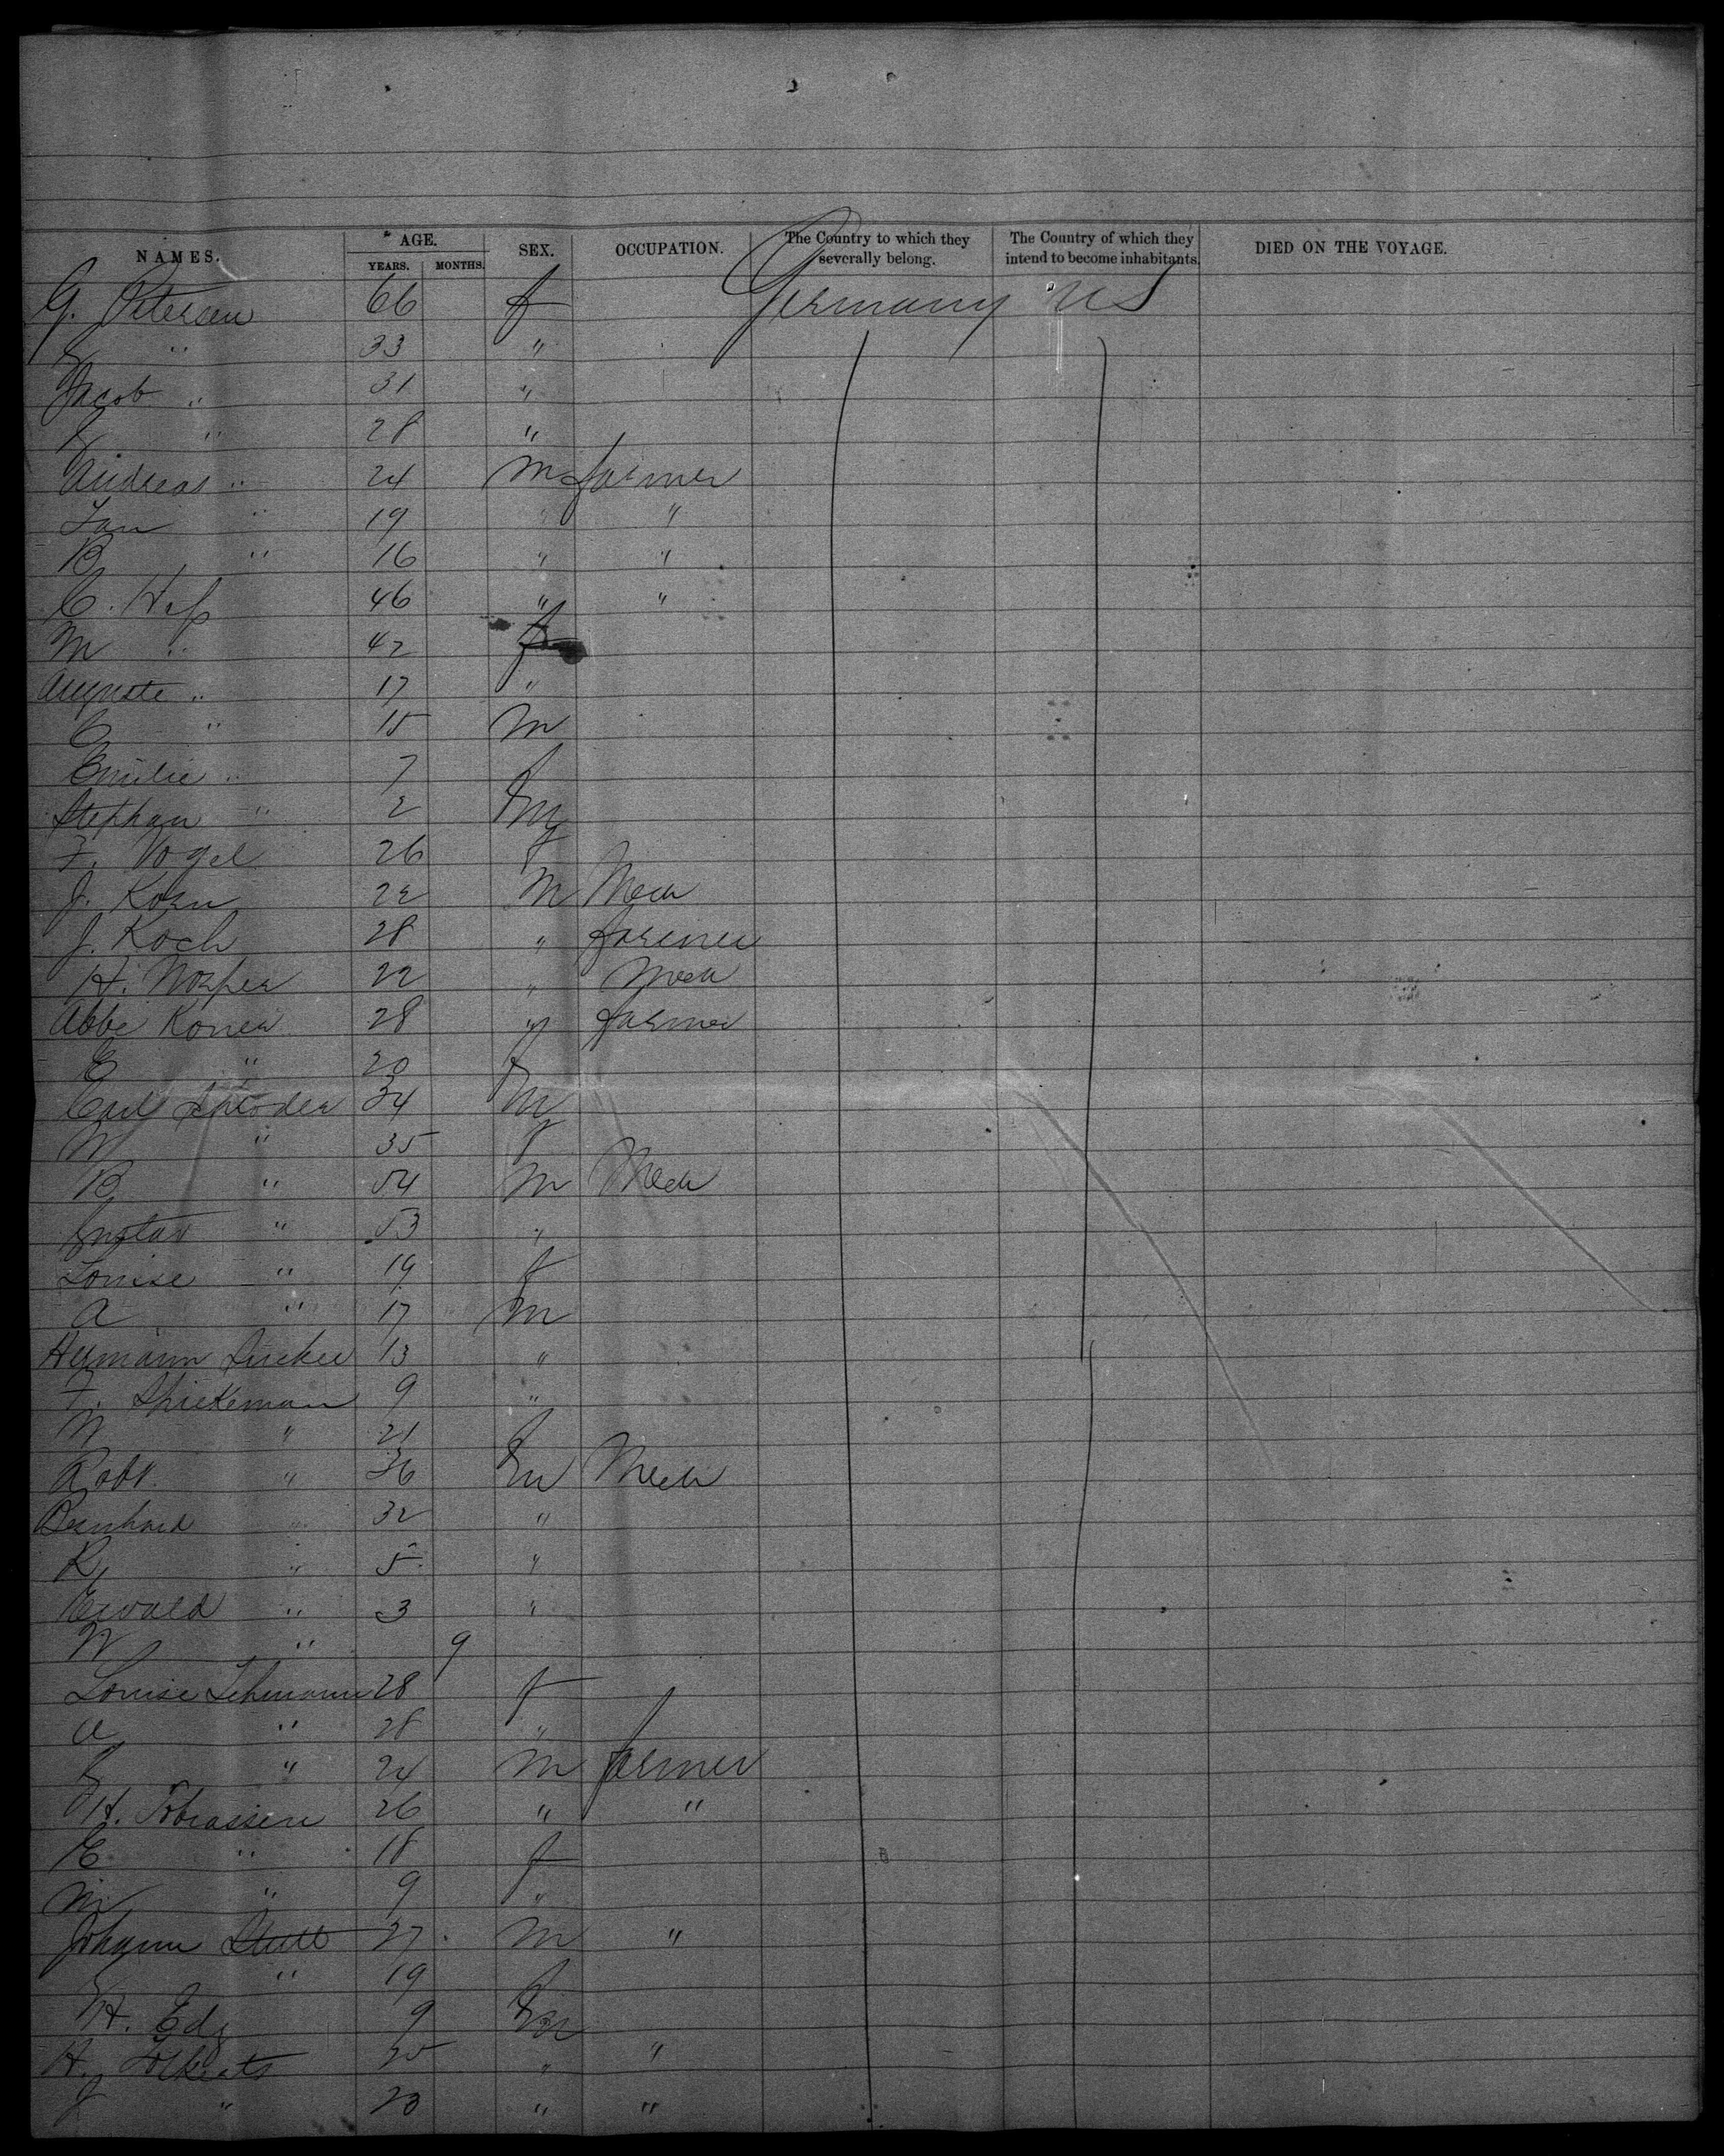 NAMES. AGE. SEX. OCCUPATION. The Country to which they severally belong. The Country of which they intend to become inhabitants. DIED ON THE VOYAGE.
YEARS. MONTHS.
G. Petersen 66 f Germany US
" 33 "
Jacob " 31 "
" 28 "
Andreas " 24 M farmer
Jan " 19 " "
B " 16 " "
C. Hess 46 " "
M " 42 f
Auguste " 17 "
C " 15 M
Emilie " 7 f
Stephan " 2 M
F. Vogel 26 f
J. Korn 22 M Mech
J. Koch 28 " farmer
H. 22 " Mech
Abbe 28 " farmer
E " 20 f
Carl Schroder 34 M
W " 35 f
B " 54 M Mech
Gustav " 53 "
Louise " 19 f
A " 17 M
Hermann 13 "
F. Spiekeman 9 "
W " 21 f
Robt. " 36 M Mech
Bernhard " 32 "
R " 5 "
Ewald " 3 "
W " 9
Louise Lehmann 28 f
A " 28 "
" 24 M farmer
H. Tobiassen 26 " "
E " 18 f
M " 9 "
Johann 27 M "
" 19 f
H. 9 M
H. 25 " "
J " 20 " "